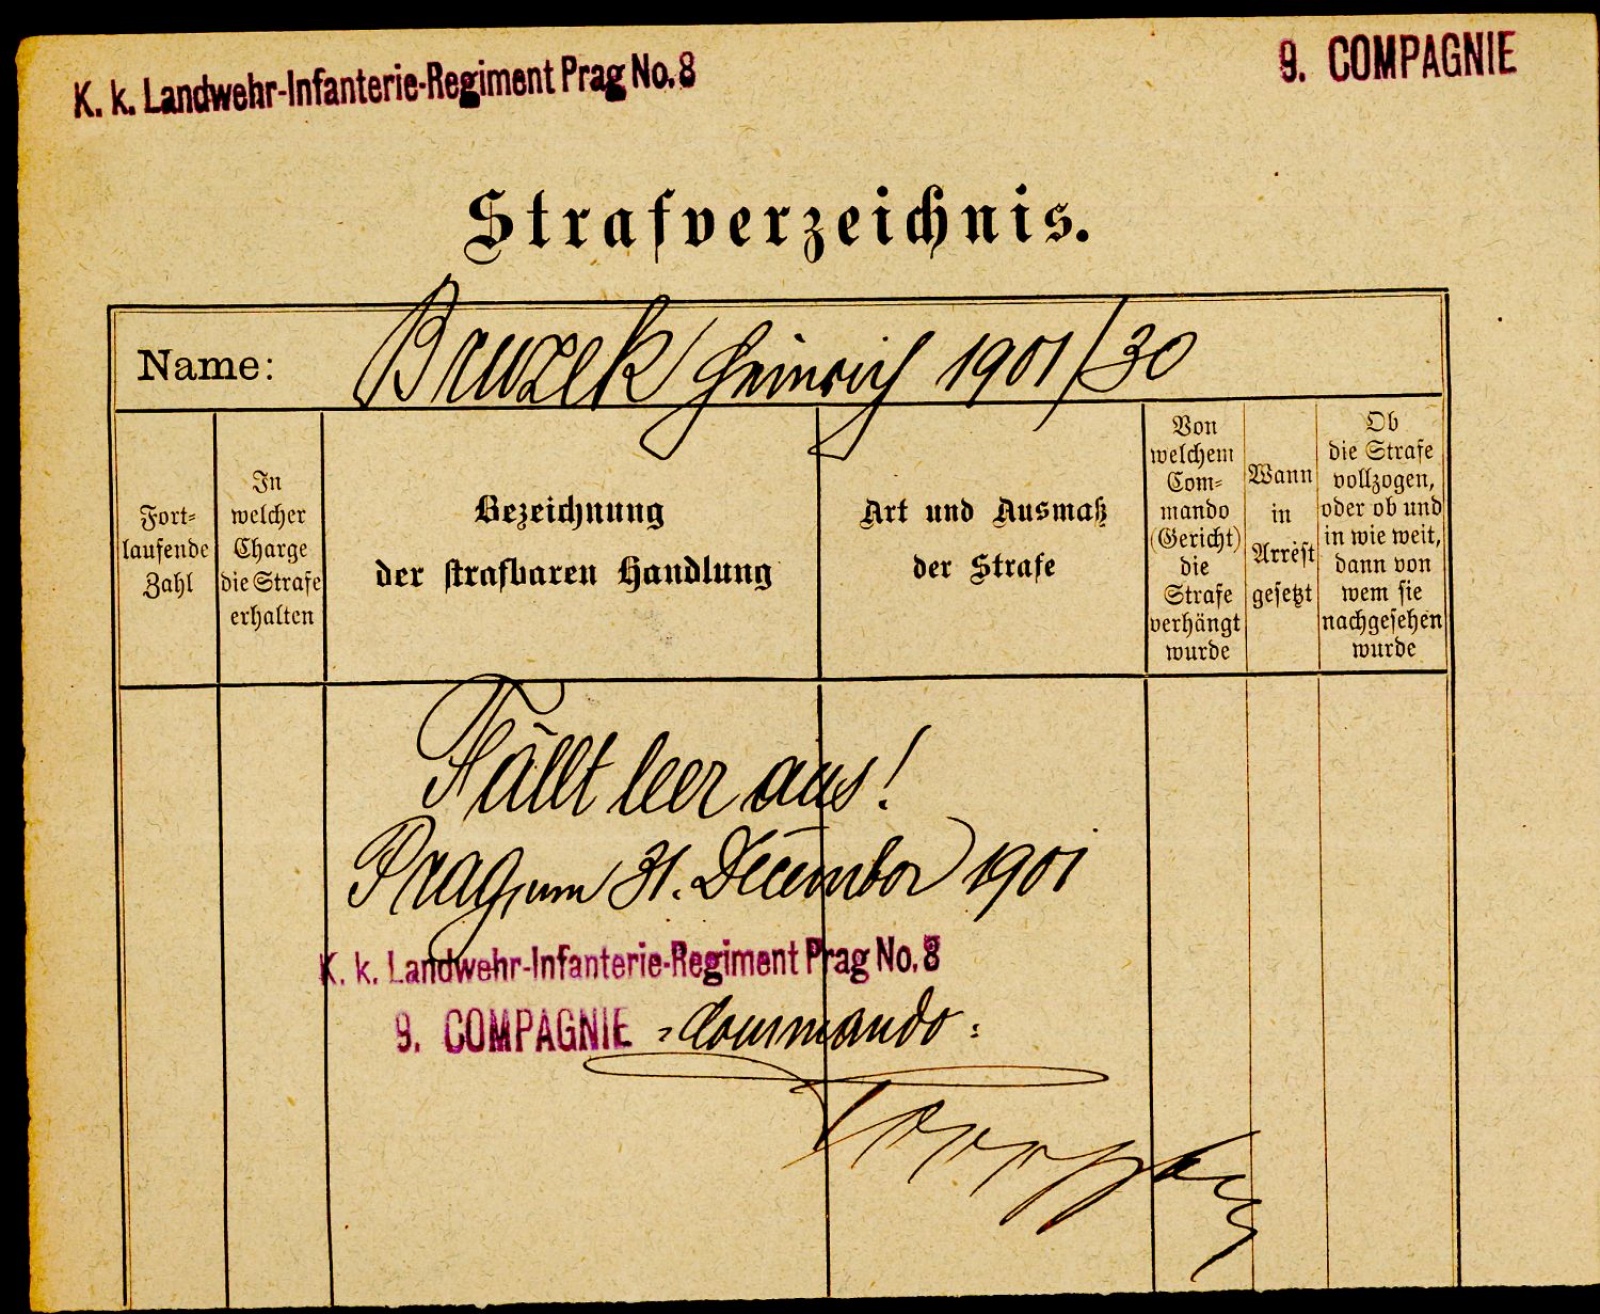 K. k. Landwehr-Infanterie-Regiment Prag No. 8
9. COMPAGNIE
Strafverzeichnis.
Name: Bruzek Heinrich 1901/30
Fort-
laufende
Zahl
In
welcher
Charge
die Strafe
erhalten
Bezeichnung
der strafbaren Handlung
Art und Ausmaß
der Strafe
Von
welchem
Com-
mando
(Gericht)
die
Strafe
verhängt
wurde
Wann
in
Arrest
gesetzt
Ob
die Strafe
vollzogen,
oder ob und
in wie weit,
dann von
wem sie
nachgesehen
wurde
Fällt leer aus!
Prag, am 31. December 1901
K. k. Landwehr-Infanterie-Regiment Prag No. 8
9. COMPAGNIE =Commando=